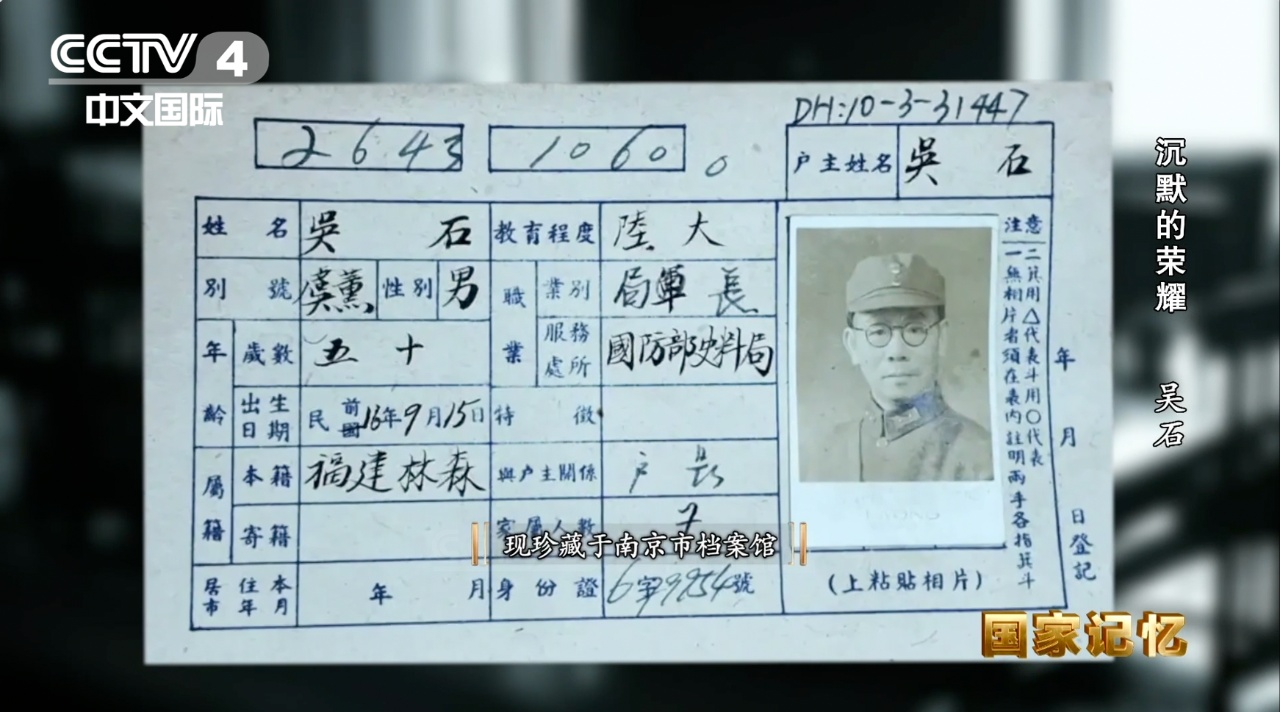 CCTV 4
中文国际
DH:10-3-31447
2643
1060
0
户主姓名 吳石
姓名 吳石 教育程度 陸大
別號 虞薰 性別 男 職業 業別 軍局長
服務處所 國防部史料局
年齡 歲數 五十
出生日期 民前國16年9月15日 特徵
屬籍 本籍 福建林森 與户主關係 户長
寄籍 家屬人數 7
居住本市年月 年 月 身份證 6字9254號
注意
一無相片者須在表內註明兩手各指箕斗
二箕用△代表斗用〇代表
(上粘貼相片)
年 月 日登記
现珍藏于南京市档案馆
沉默的荣耀 吴石
国家记忆